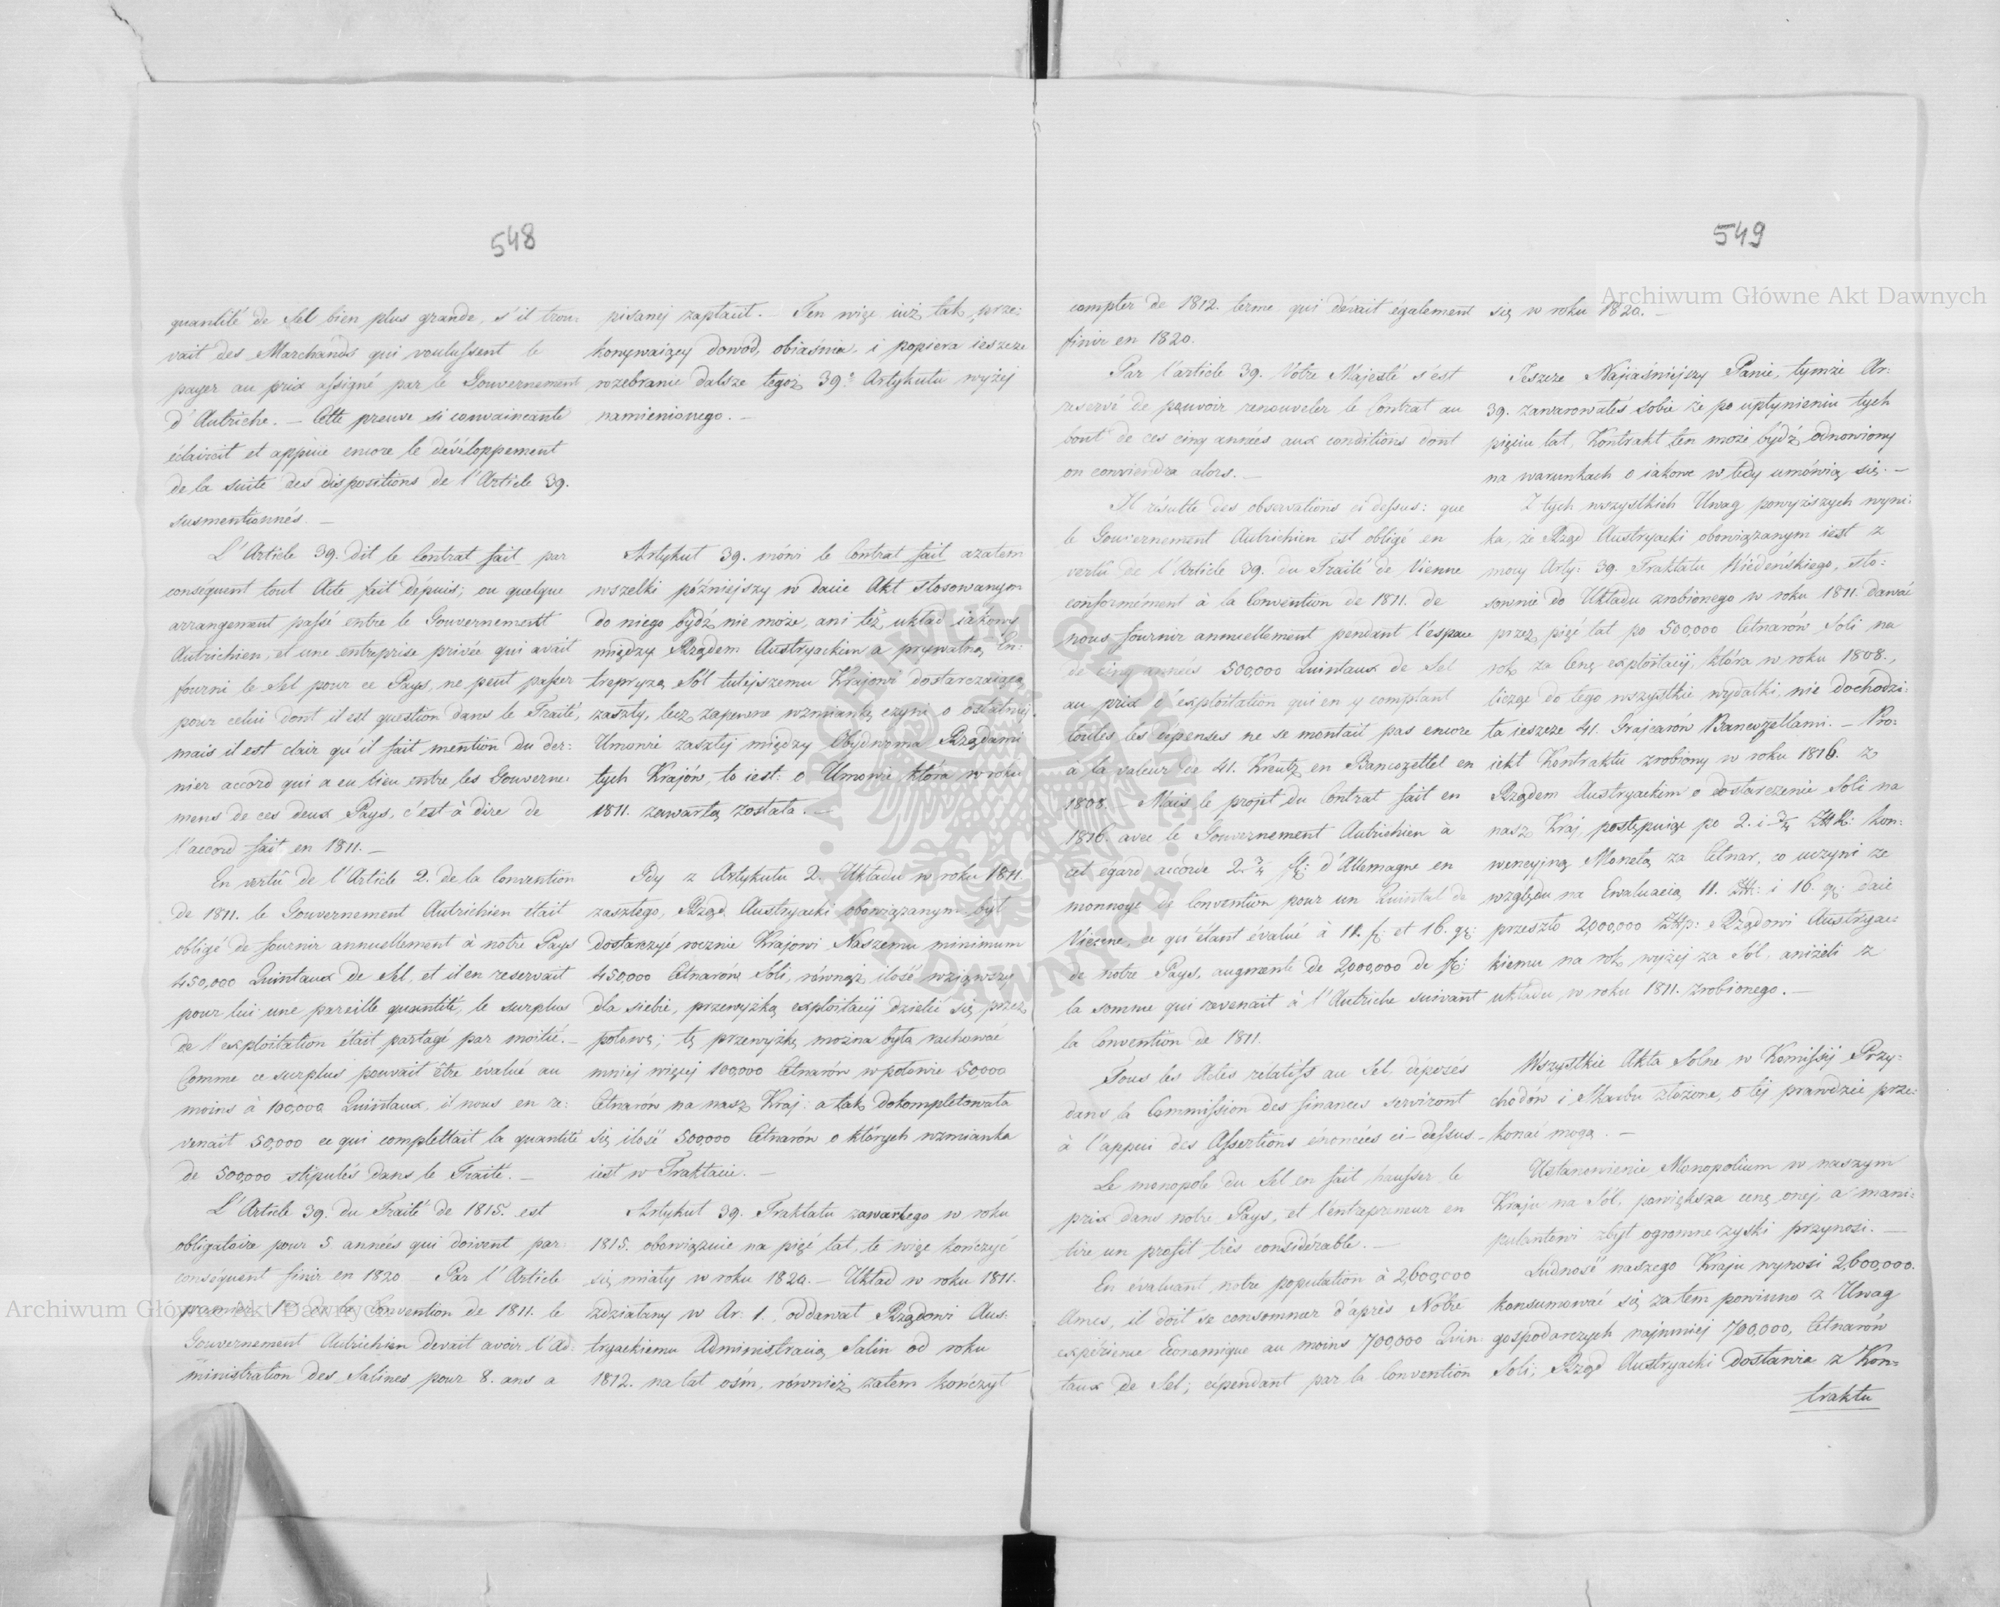 548
quantité de Sel bien plus grande, s'il trou-
vait des Marchands qui voulussent le
payer au prix assigné par le Gouvernement
d'Autriche. — Cette preuve si convaincante
éclaircit et appuie encore le développement
de la suite des dispositions de l'Article 39.
susmentionnés. —
L'Article 39. dit le Contrat fait par
conséquent tout Acte fait dépuis; ou quelque
arrangement passé entre le Gouvernement
Autrichien, et une entreprise privée qui avait
fourni le Sel pour ce Pays, ne peut passer
pour celui dont il est question dans le Traité,
mais il est clair qu'il fait mention du der-
nier accord qui a eu lieu entre les Gouverne-
mens de ces deux Pays, c'est à dire de
l'accord fait en 1811. —
En vertû de l'Article 2. de la Convention
de 1811. le Gouvernement Autrichien était
obligé de fournir annuellement à notre Pays
450,000 Quintaux de Sel, et il en reservait
pour lui une pareille quantité, le surplus
de l'exploitation était partagé par moitié. —
Comme ce surplus pouvait être évalué au
moins à 100,000 Quintaux, il nous en re-
venait 50,000 ce qui complettait la quantité
de 500,000 stipulés dans le Traité. —
L'Article 39. du Traité de 1815. est
obligatoire pour 5 années qui doivent par
conséquent finir en 1820 Par l'Article
premier de la Convention de 1811. le
Gouvernement Autrichien devait avoir l'Ad-
ministration des Salines pour 8. ans a
pisanej zapłacił. — Ten więc iuż tak prze-
konywaiący dowód, obiaśnia, i popiera ieszcze
rozebranie dalsze tegoż 39.º Artykułu wyżej
namienionego. —
Artykuł 39. mówi le Contrat fait a zatem
wszelki późniejszy w dacie Akt stosowanym
do niego bydź nie może, ani też układ iakowy
między Rządem Austryackim a prywatną En-
trepryzą Sól tutejszemu Krajowi dostarczaiącą
zaszły, lecz zapewne wzmiankę czyni o ostatniej
Umowie zaszłej między Obydwoma Rządami
tych Krajów, to iest: o Umowie która w roku
1811. zawartą została. —
Gdy z Artykułu 2. Układu w roku 1811
zaszłego, Rząd Austryacki obowiązanym był
dostarczyć rocznie Krajowi Naszemu minimum
450,000 Cetnarów Soli, równąż ilość wziąwszy
dla siebie, przewyżką exploitacij dzielić się przez
połowę; tę przewyżkę można była rachować
mniej więcej 100,000 Cetnarów w połowie 50,000
Cetnarów na nasz Kraj: a tak dokompletowała
się ilość 500,000 Cetnarów o których wzmianka
iest w Traktacie. —
Artykuł 39. Traktatu zawartego w roku
1815. obowiązuie na pięć lat, te więc kończyć
się miały w roku 1820. — Układ w roku 1811.
zdziałany w Ar: 1. oddawał Rządowi Aus-
tryackiemu Administracią Salin od roku
1812. na lat ośm, również zatem kończył
549
compter de 1812. terme qui dévait également
finir en 1820.
Par l'article 39. Votre Majesté s'est
reservé de pouvoir renouveler le Contrat au
bout de ces cinq années aux conditions dont
on conviendra alors. —
Il résulte des observations ci dessus: que
le Gouvernement Autrichien est obligé en
vertû de l'Article 39. du Traité de Vienne
conformément à la Convention de 1811. de
nous fournir annuellement pendant l'espace
de cinq années 500,000 Quintaux de Sel
au prix d'exploitation qui en y comptant
toutes les dépenses ne se montait pas encore
à la valeur de 41. Kreutz en Bancozettel en
1808. — Mais le projet du Contrat fait en
1816. avec le Gouvernement Autrichien à
cet égard accorde d'Allemagne en
monnoye de Convention pour un Quintal de
Vienne, ce qu'étant évalué à 11. f: et 16. gr:
de notre Pays, augmente de 2,000,000 de f:
la somme qui revenait à l'Autriche suivant
la Convention de 1811.
Tous les Actes rélatifs au Sel, déposés
dans la Commission des finances serviront
à l'appui des Assertions énoncées ci-dessus.
Le monopole du Sel en fait hausser le
prix dans notre Pays, et l'entrepreneur en
tire un profit très considérable. —
En évaluant notre population à 2,600,000
Ames, il doit se consommer d'après Notre
expérience Economique au moins 700,000 Quin-
taux de Sel; cépendant par la Convention
się w roku 1820. —
Jeszcze Najiaśniejszy Panie, tymże Ar:
39. zawarowałeś sobie że po upłynieniu tych
pięciu lat, Kontrakt ten może bydź odnowiony
na warunkach o iakowe w tedy umówią się. —
Z tych wszystkich Uwag powyższych wyni-
ka, że Rząd Austryacki obowiązanym iest z
mocy Arty: 39. Traktatu Wiedeńskiego, sto-
sownie do Układu zrobionego w roku 1811. dawać
przez pięć lat po 500,000 Cetnarów Soli na
rok za cenę exploitacij, która w roku 1808.,
licząc do tego wszystkie wydatki, nie dochodzi-
ła ieszcze 41. Grajcarów Bancozetlami. — Pro-
iekt Kontraktu zrobiony w roku 1816. z
Rządem Austryackim o dostarczenie Soli na
nasz Kraj postępuiąc po kon-
wencyiną Monetą za Cetnar, co uczyni ze
względu na Ewaluacią 11. Zł: i 16. gr: daie
przeszło 2,000,000 Złp: Rządowi Austryac-
kiemu na rok wyżej za Sól, aniżeli z
układu w roku 1811. zrobionego. —
Wszystkie Akta Solne w Komissij Przy-
chodów i Skarbu złożone, o tej prawdzie prze-
konać mogą. —
Ustanowienie Monopolium w naszym
Kraju na Sól, powiększa cenę onej, a mani-
pulantowi zbyt ogromne zyski przynosi. —
Ludność naszego Kraju wynosi 2,600,000.
konsumować się zatem powinno z Uwag
gospodarczych najmniej 700,000, Cetnarów
Soli; Rząd Austryacki dostawia z Kon-
traktu
Archiwum Główne Akt Dawnych
Archiwum Główne Akt Dawnych
ARCHIWUM GŁÓWNE AKT DAWNYCH